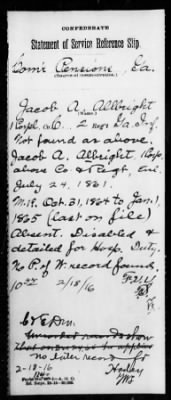 CONFEDERATE
Statement of Service Reference Slip
Com'r Pensions, Ga.
Jacob A. Allbright
(Name.)
Corpl. Co. 2 Regt Ga. Inf.
Not found as above.
Jacob A. Albright, Corp.
above Co & Regt, enl.
July 24, 1861.
M.R. Oct. 31, 1864 to Jan. 1,
1865 (last on file)
Absent. Disabled &
detailed for Hosp. Duty.
No P. of W. record found.
2/18/16
no later record
2-18-16